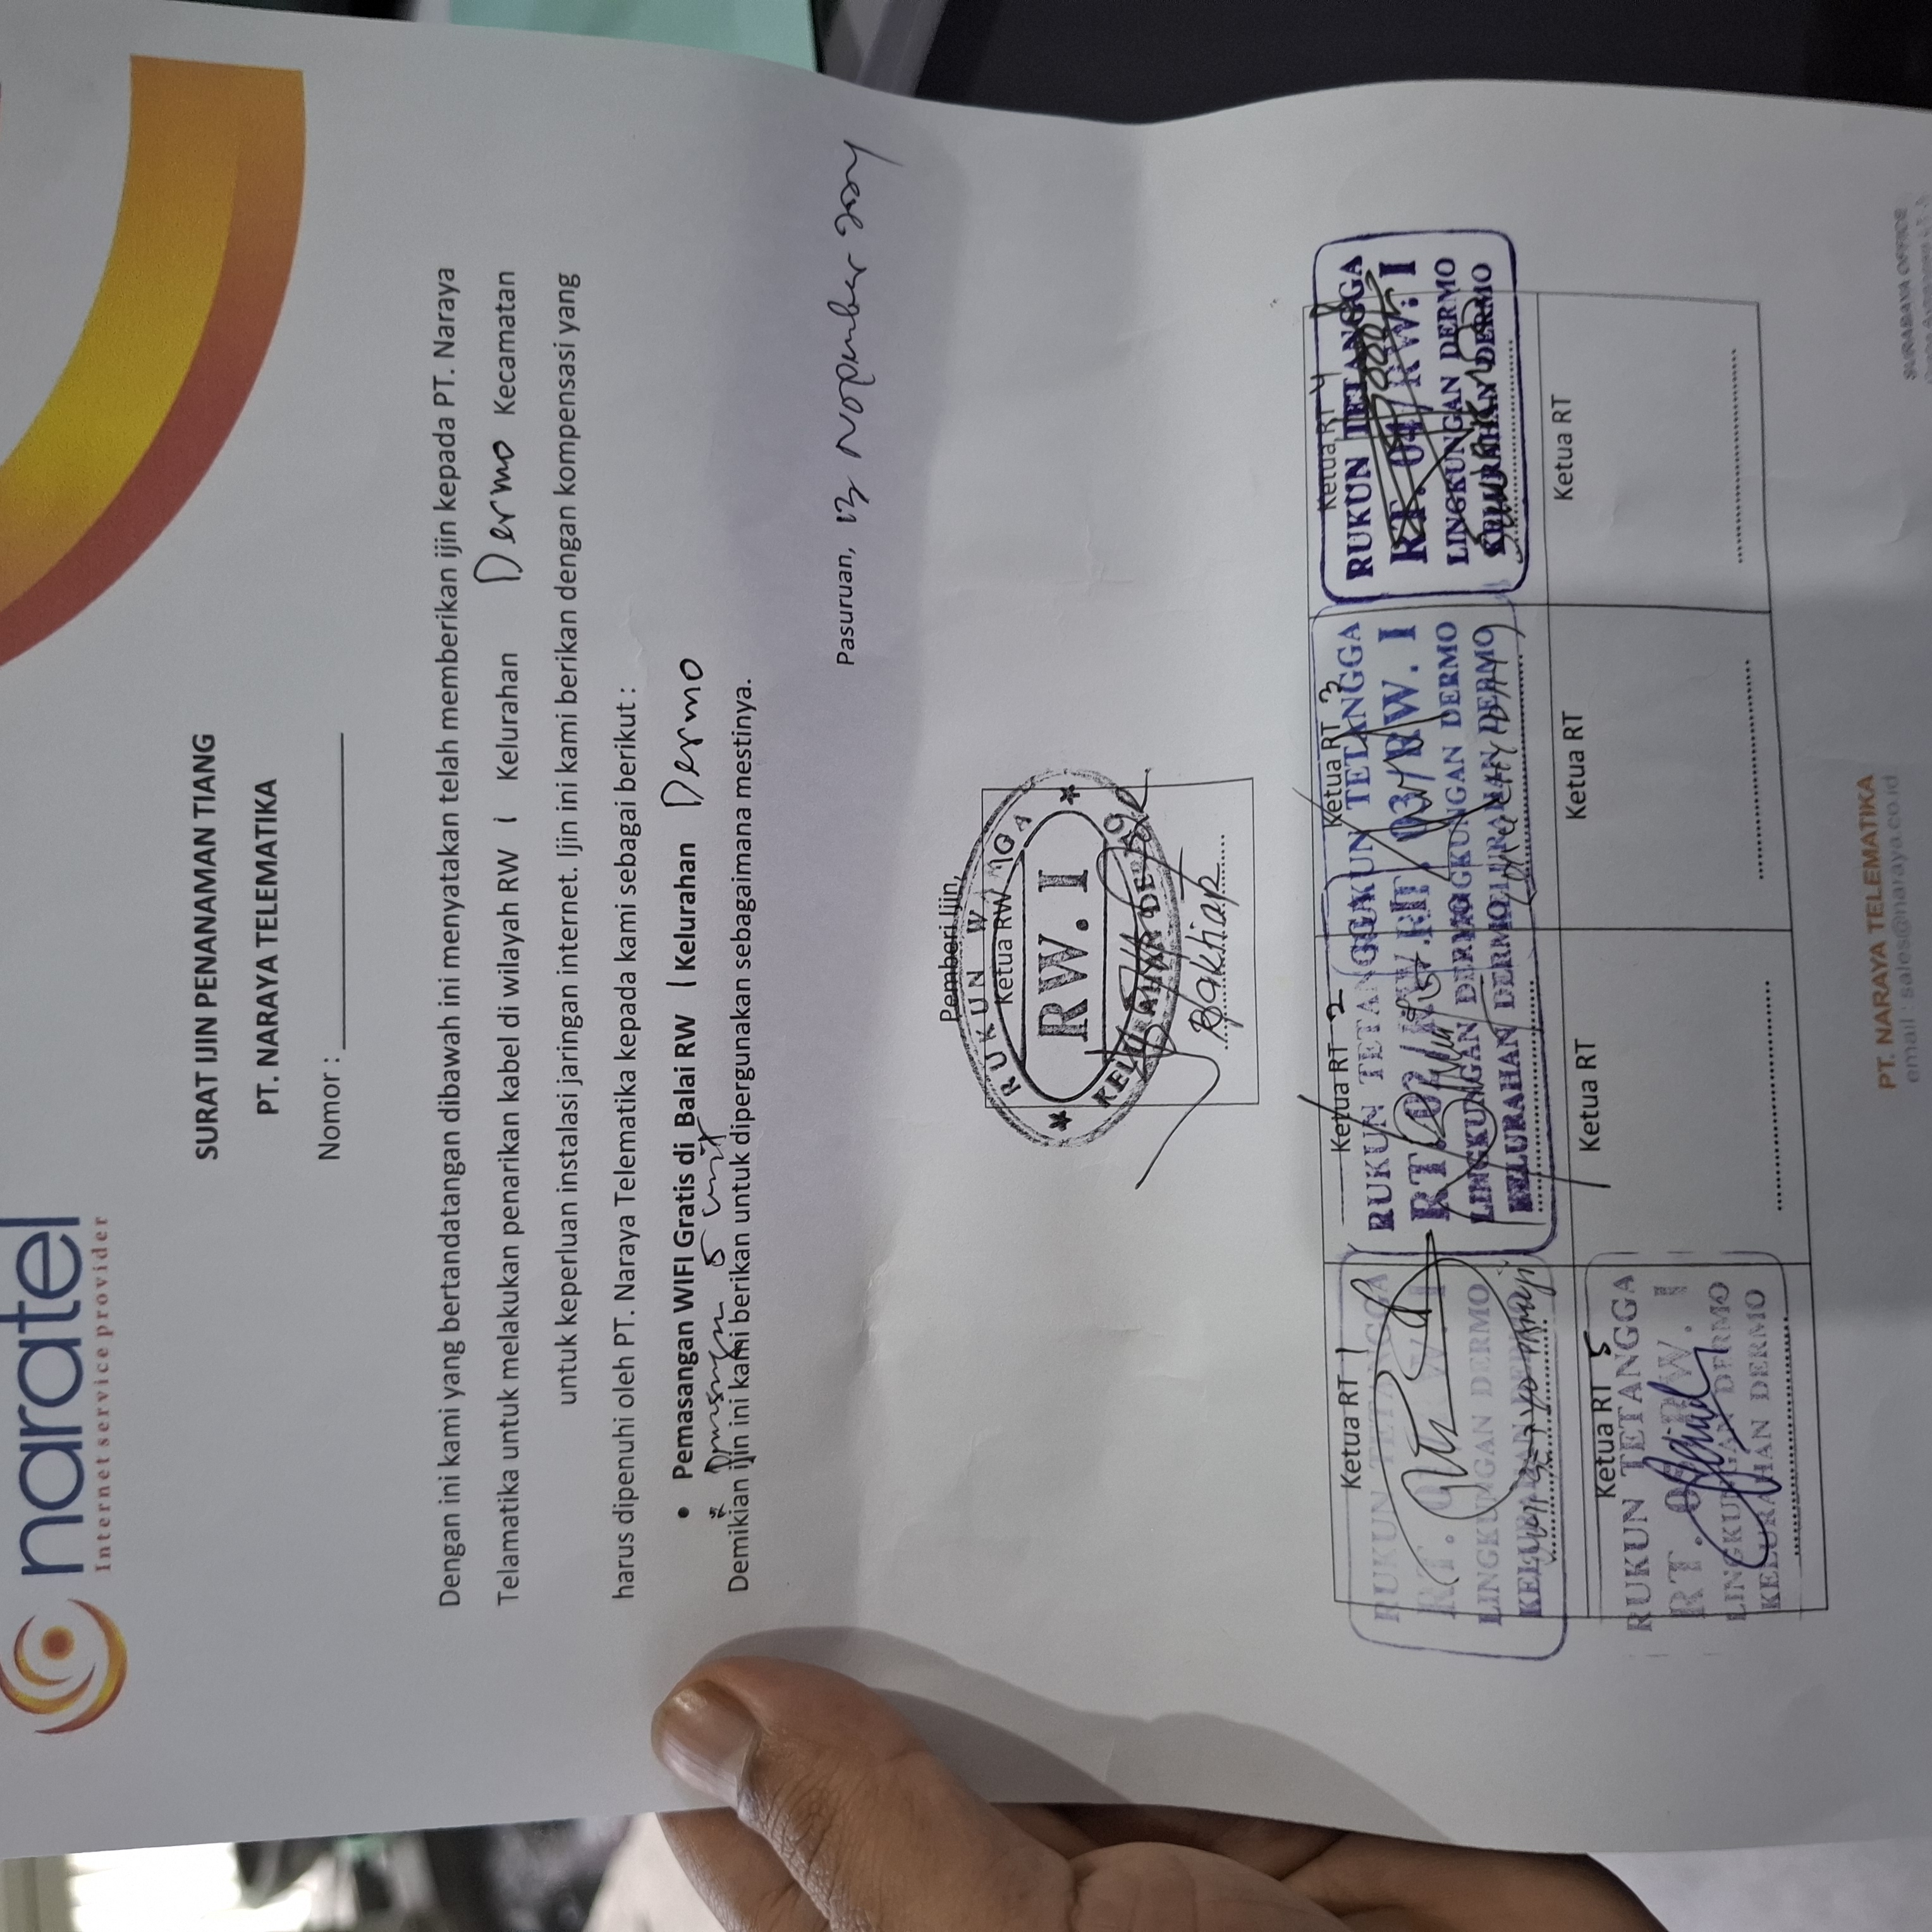 naratel
Internet service provider
SURAT IJIN PENANAMAN TIANG
PT. NARAYA TELEMATIKA
Nomor :
Dengan ini kami yang bertandatangan dibawah ini menyatakan telah memberikan ijin kepada PT. Naraya
Telamatika untuk melakukan penarikan kabel di wilayah RW 1 Kelurahan Dermo Kecamatan
untuk keperluan instalasi jaringan internet. Ijin ini kami berikan dengan kompensasi yang
harus dipenuhi oleh PT. Naraya Telematika kepada kami sebagai berikut :
• Pemasangan WIFI Gratis di Balai RW 1 Kelurahan Dermo
5 unit
Demikian ijin ini kami berikan untuk dipergunakan sebagaimana mestinya.
Pasuruan, 13 Nopember 2024
Pemberi Ijin,
RUKUN WARGA
Ketua RW
RW. I
KELURAHAN DERMO
Baktiar
Ketua RT 1
RUKUN TETANGGA
RT. 01/RW. I
LINGKUNGAN DERMO
KELURAHAN DERMO
Ketua RT 2
RUKUN TETANGGA
RT. 02/RW. I
LINGKUNGAN DERMO
KELURAHAN DERMO
Ketua RT 3
RUKUN TETANGGA
RT. 03/RW. I
LINGKUNGAN DERMO
KELURAHAN DERMO
Ketua RT 4
RUKUN TETANGGA
RT. 04/RW. I
LINGKUNGAN DERMO
KELURAHAN DERMO
Ketua RT 5
RUKUN TETANGGA
RT. 05/RW. I
LINGKUNGAN DERMO
KELURAHAN DERMO
Ketua RT
Ketua RT
Ketua RT
PT. NARAYA TELEMATIKA
email : sales@naraya.co.id
SURABAYA OFFICE